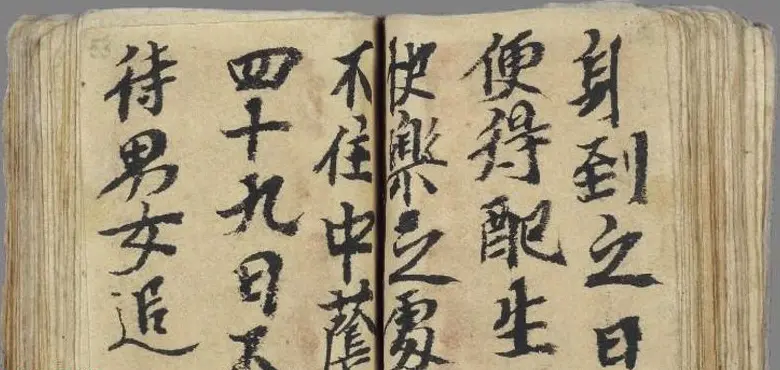 身到之日
便得配生
快樂之處
不住中蔭
四十九日不
待男女追